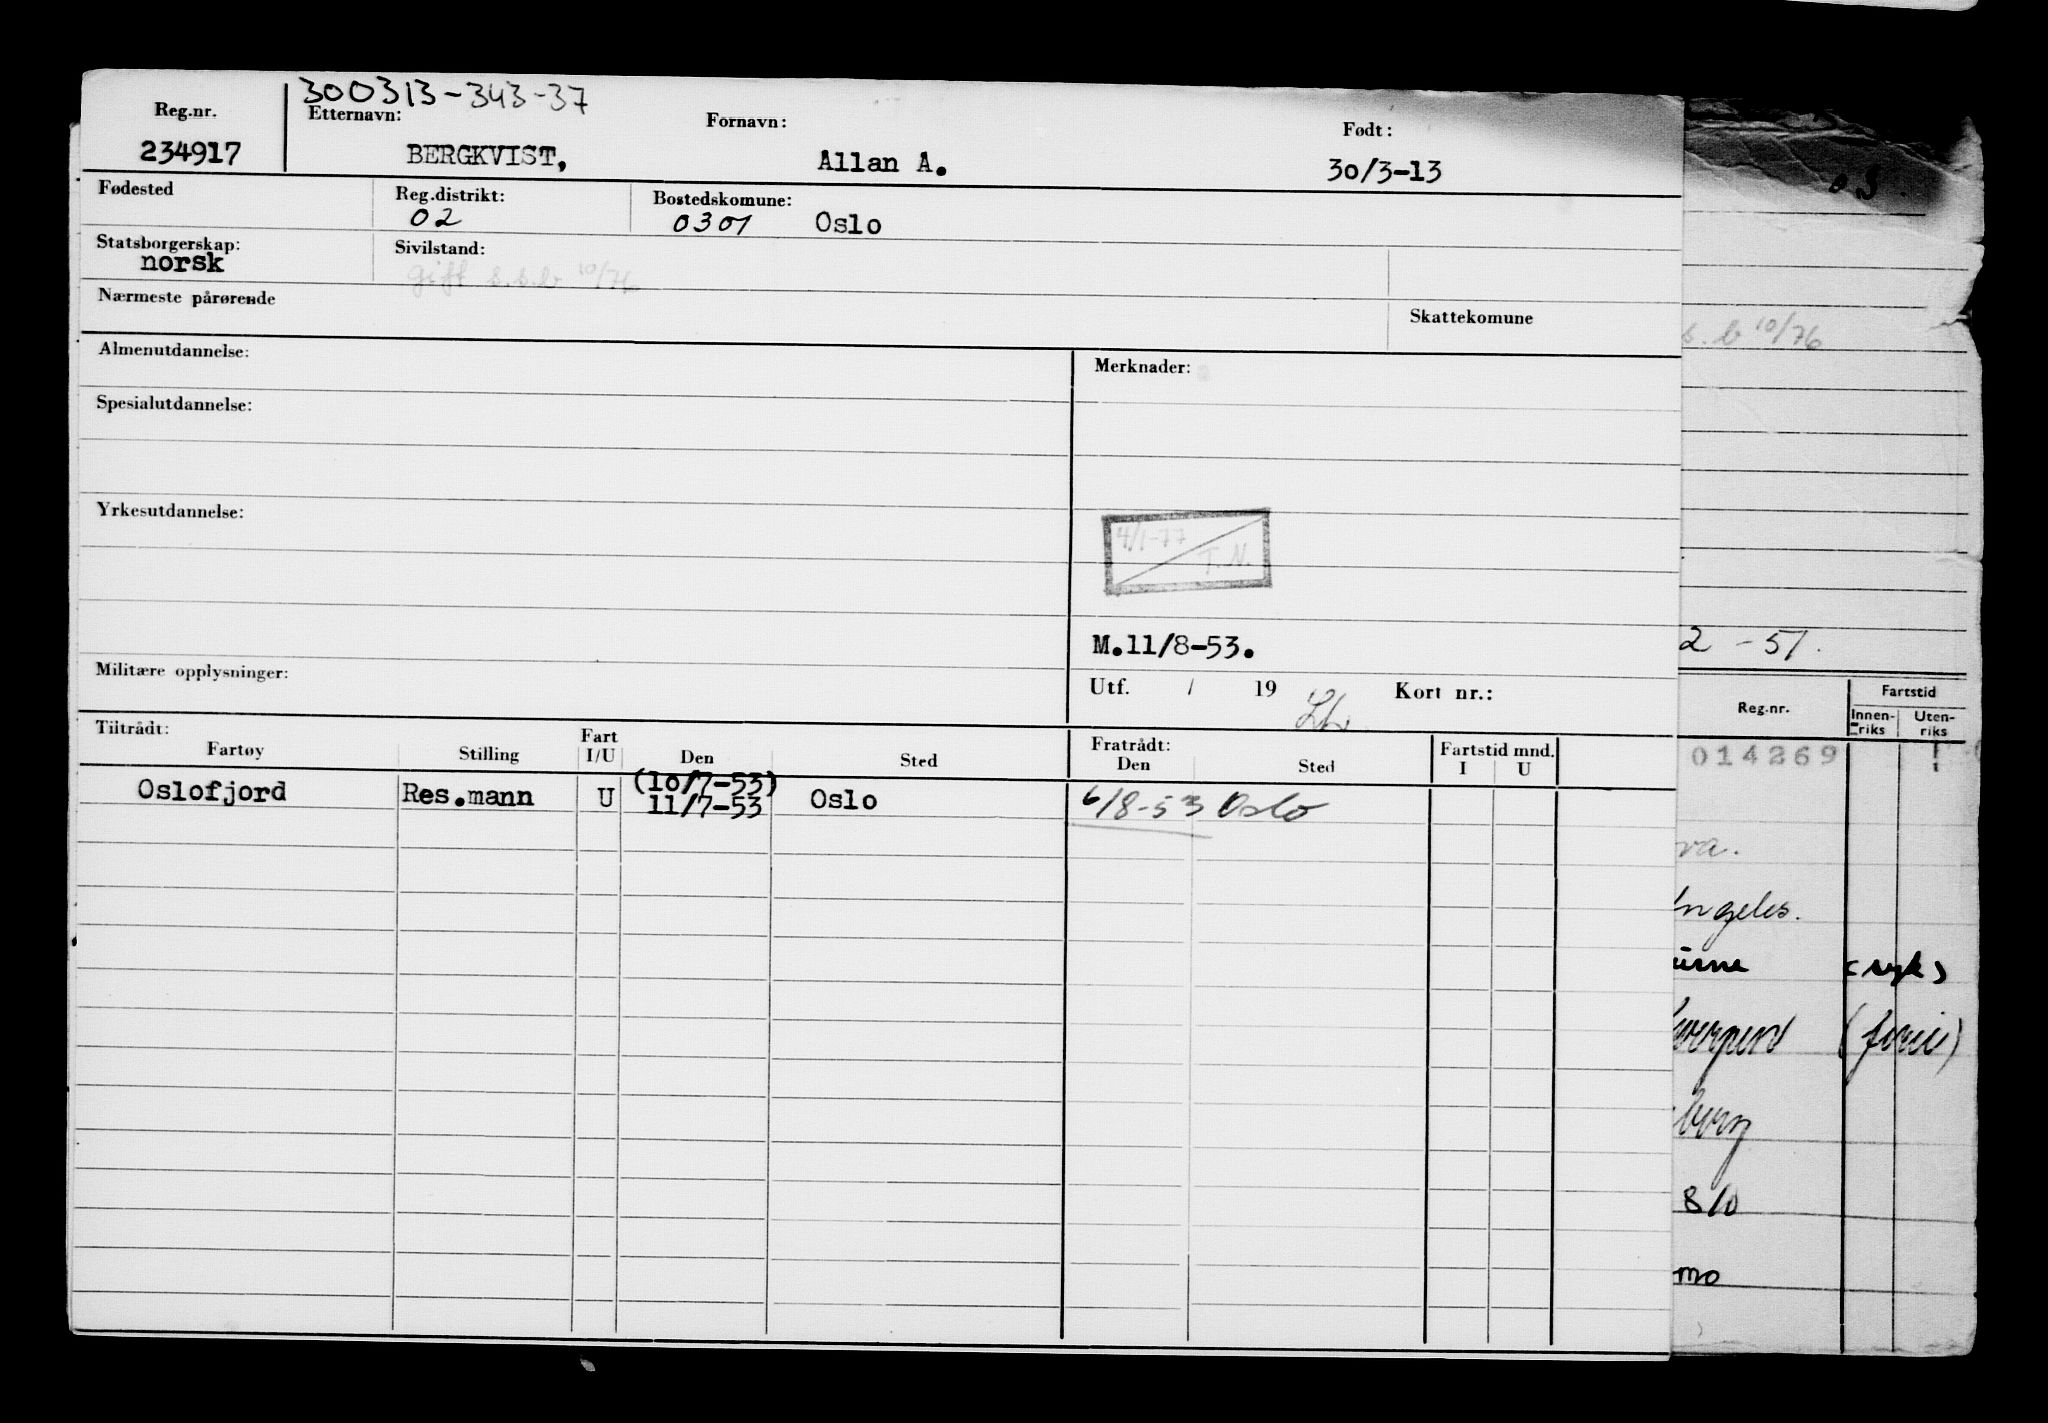 300313-343-37
Reg.nr. Etternavn: Fornavn: Født:
234917 BERGKVIST, Allan A. 30/3-13
Fødested Reg.distrikt: Bostedskomune:
02 0301 Oslo
Statsborgerskap: Sivilstand:
norsk gift s.s.b 10/76
Nærmeste pårørende Skattekomune
b 10/76
Almenutdannelse: Merknader:
Spesialutdannelse:
Yrkesutdannelse:
4/1-77
T.N.
M.11/8-53.
2 - 51.
Militære opplysninger: Utf. / 19 Kort nr.:
Reg.nr. Fartstid
Innen-riks Uten-riks
Tiltrådt: Fratrådt:
Fartøy Stilling Fart I/U Den Sted Den Sted Fartstid mnd. I U
014269
(10/7-53)
Oslofjord Res.mann U 11/7-53 Oslo 6/8-53 Oslo
va.
ngeles.
(syk)
werpen
borg
8/0
mo